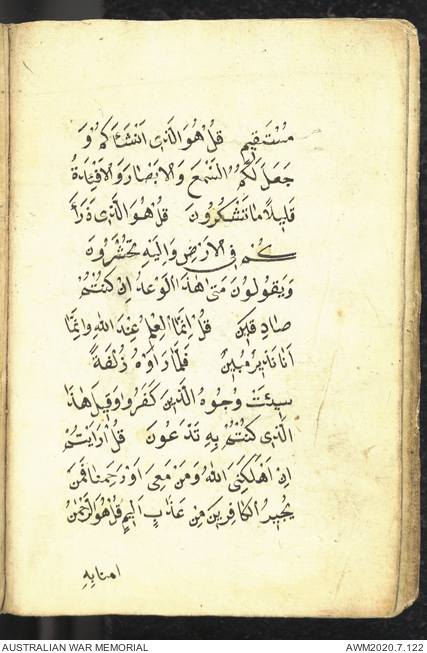 مُسْتَقِيمٍ قُلْ هُوَ الَّذِى اَنْشَاَكُمْ وَ
جَعَلَ لَكُمُ السَّمْعَ وَالْاَبْصَارَ وَالْاَفْئِدَةَ
قَلِيلًا مَا تَشْكُرُونَ قُلْ هُوَ الَّذِى ذَرَاَ
كُمْ فِى الْاَرْضِ وَاِلَيْهِ تُحْشَرُونَ
وَيَقُولُونَ مَتٰى هٰذَا الْوَعْدُ اِنْ كُنْتُمْ
صَادِقِينَ قُلْ اِنَّمَا الْعِلْمُ عِنْدَ اللّٰهِ وَاِنَّمَا
اَنَا نَذِيرٌ مُبِينٌ فَلَمَّا رَاَوْهُ زُلْفَةً
سِيئَتْ وُجُوهُ الَّذِينَ كَفَرُوا وَقِيلَ هٰذَا
الَّذِى كُنْتُمْ بِهِ تَدَّعُونَ قُلْ اَرَاَيْتُمْ
اِنْ اَهْلَكَنِىَ اللّٰهُ وَمَنْ مَعِىَ اَوْ رَحِمَنَا فَمَنْ
يُجِيرُ الْكَافِرِينَ مِنْ عَذَابٍ اَلِيمٍ قُلْ هُوَ الرَّحْمٰنُ
امنا بِهِ
AUSTRALIAN WAR MEMORIAL AWM2020.7.122